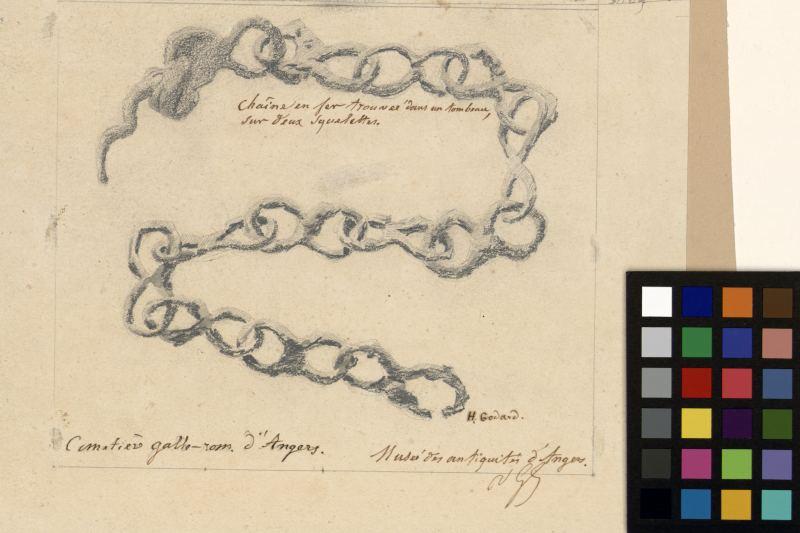 Chaîne en fer trouvée dans un tombeau,
sur deux squelettes.
H. Godard.
Cimetière gallo-rom. d'Angers.
Musée des antiquités d'Angers.